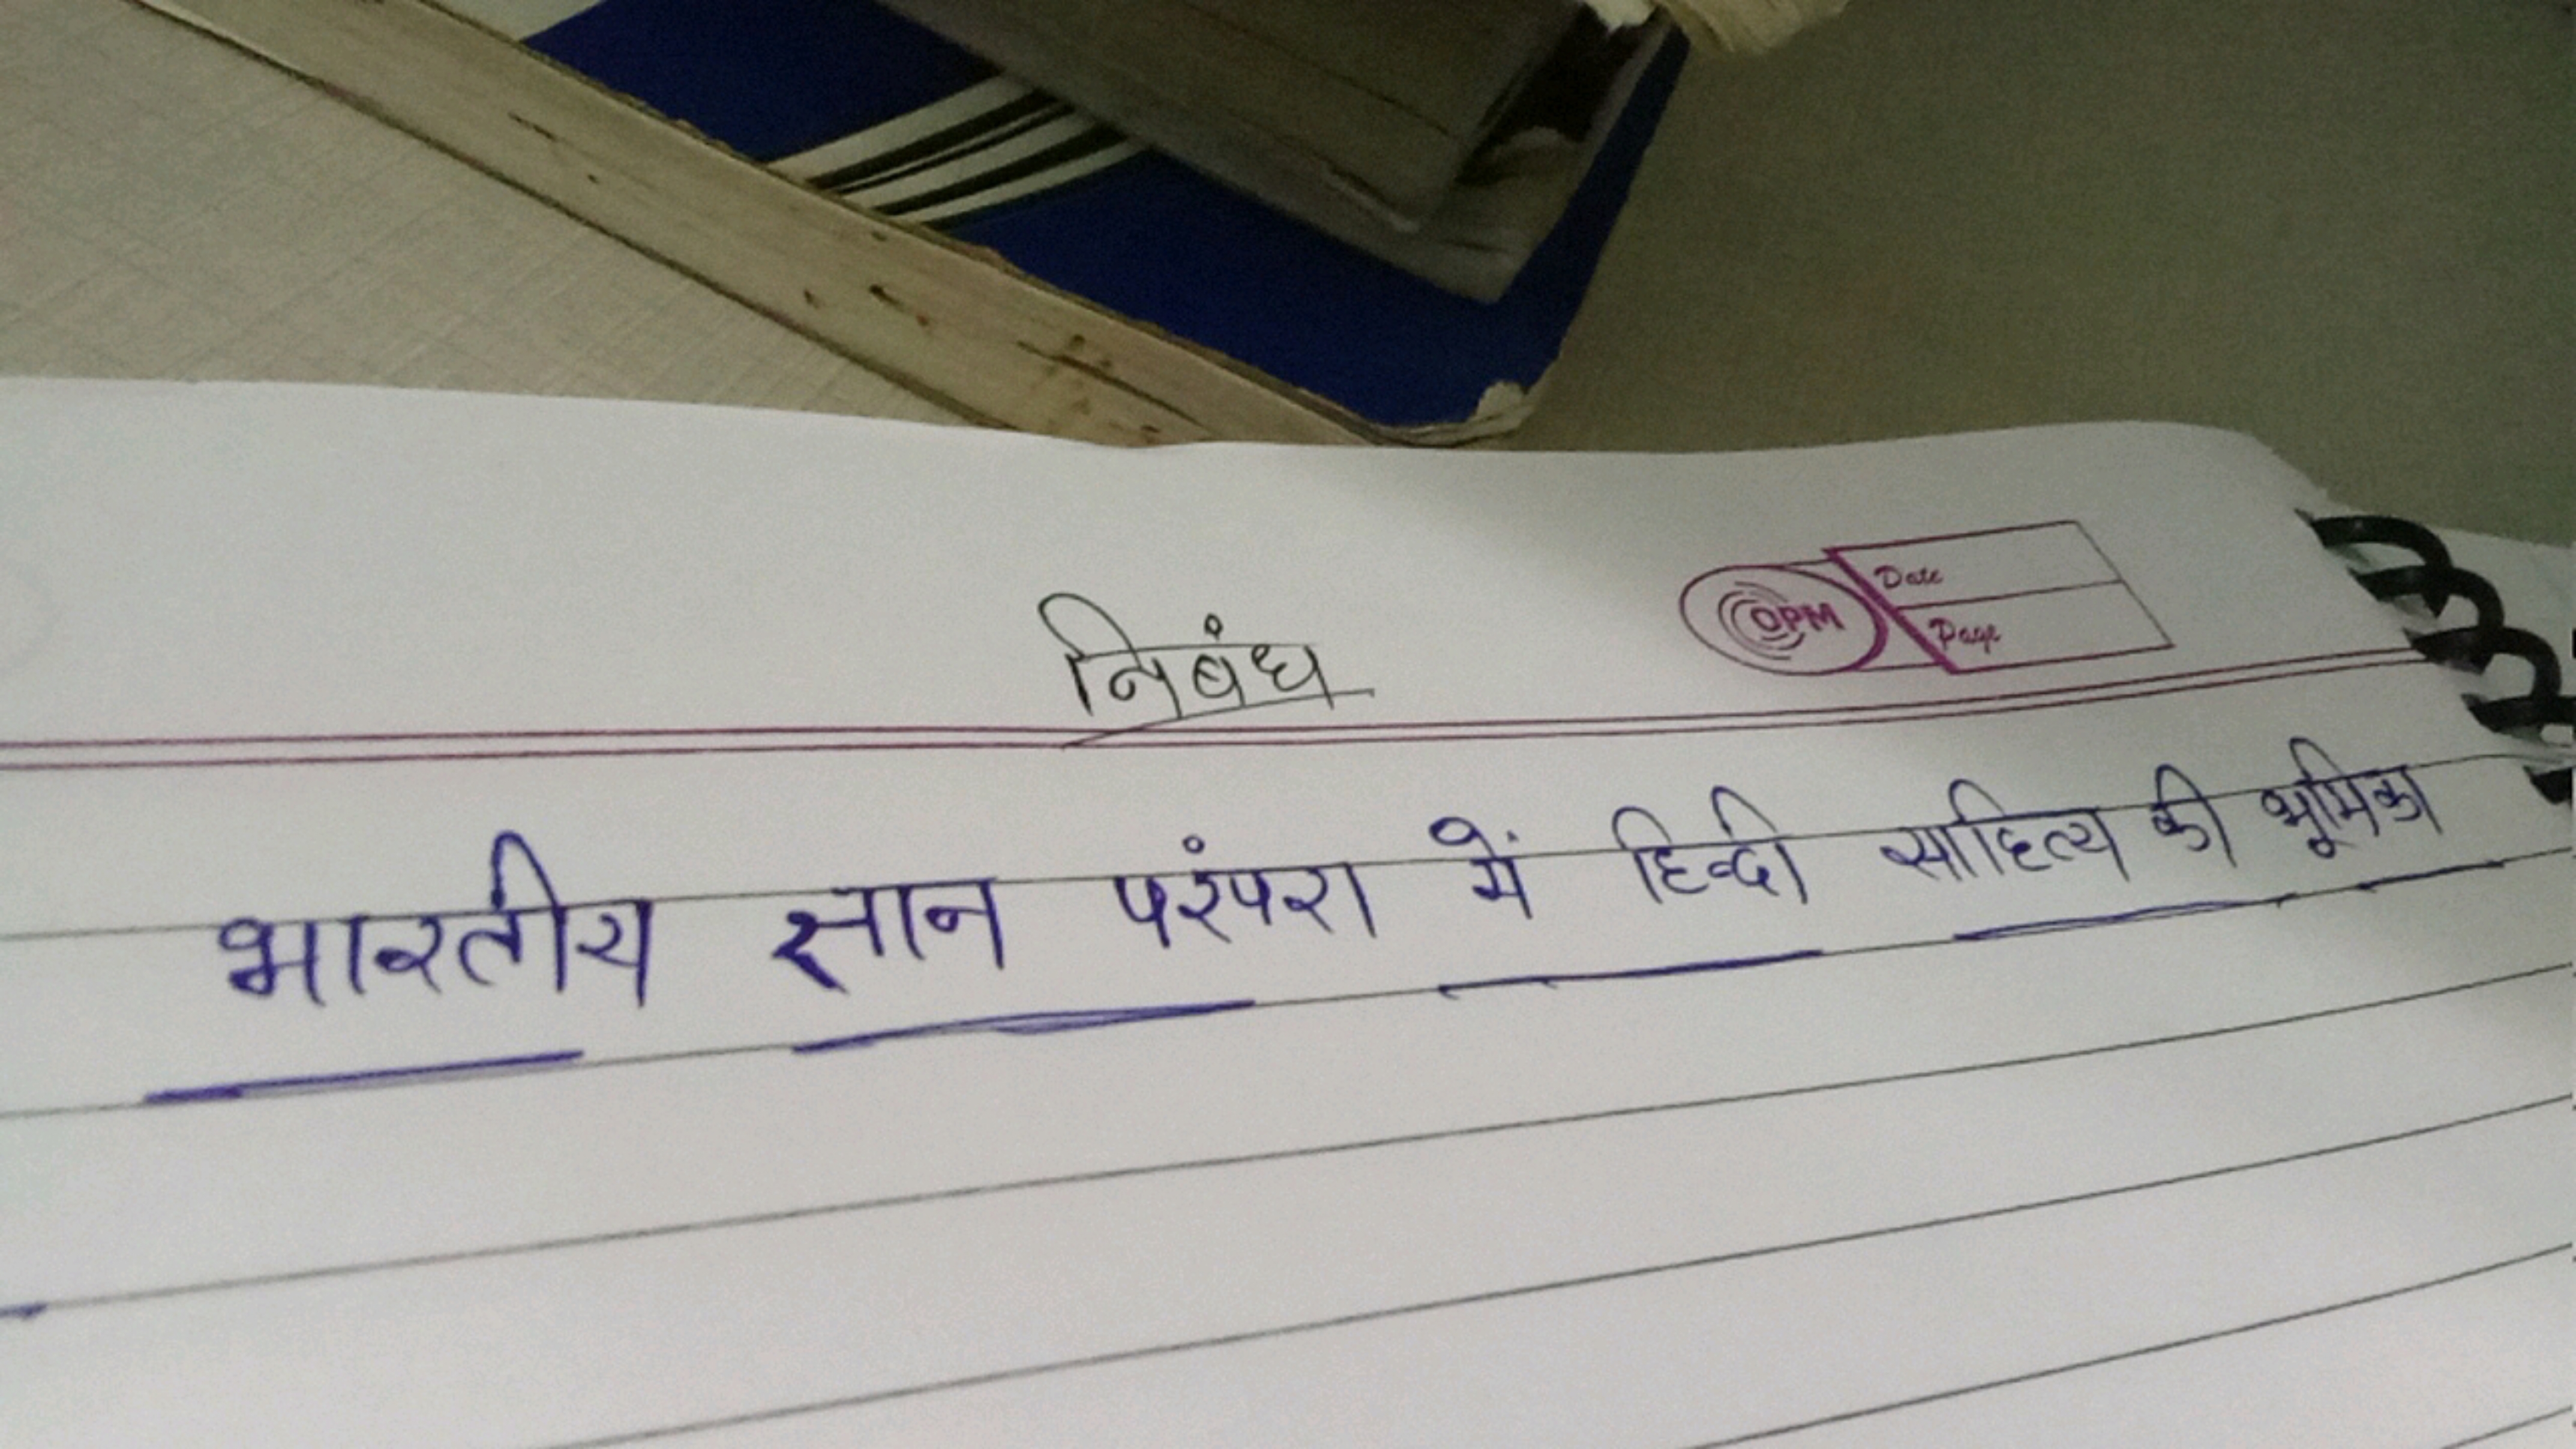 निबंध
OPM
Date
Page
भारतीय ज्ञान परंपरा में हिन्दी साहित्य की भूमिका